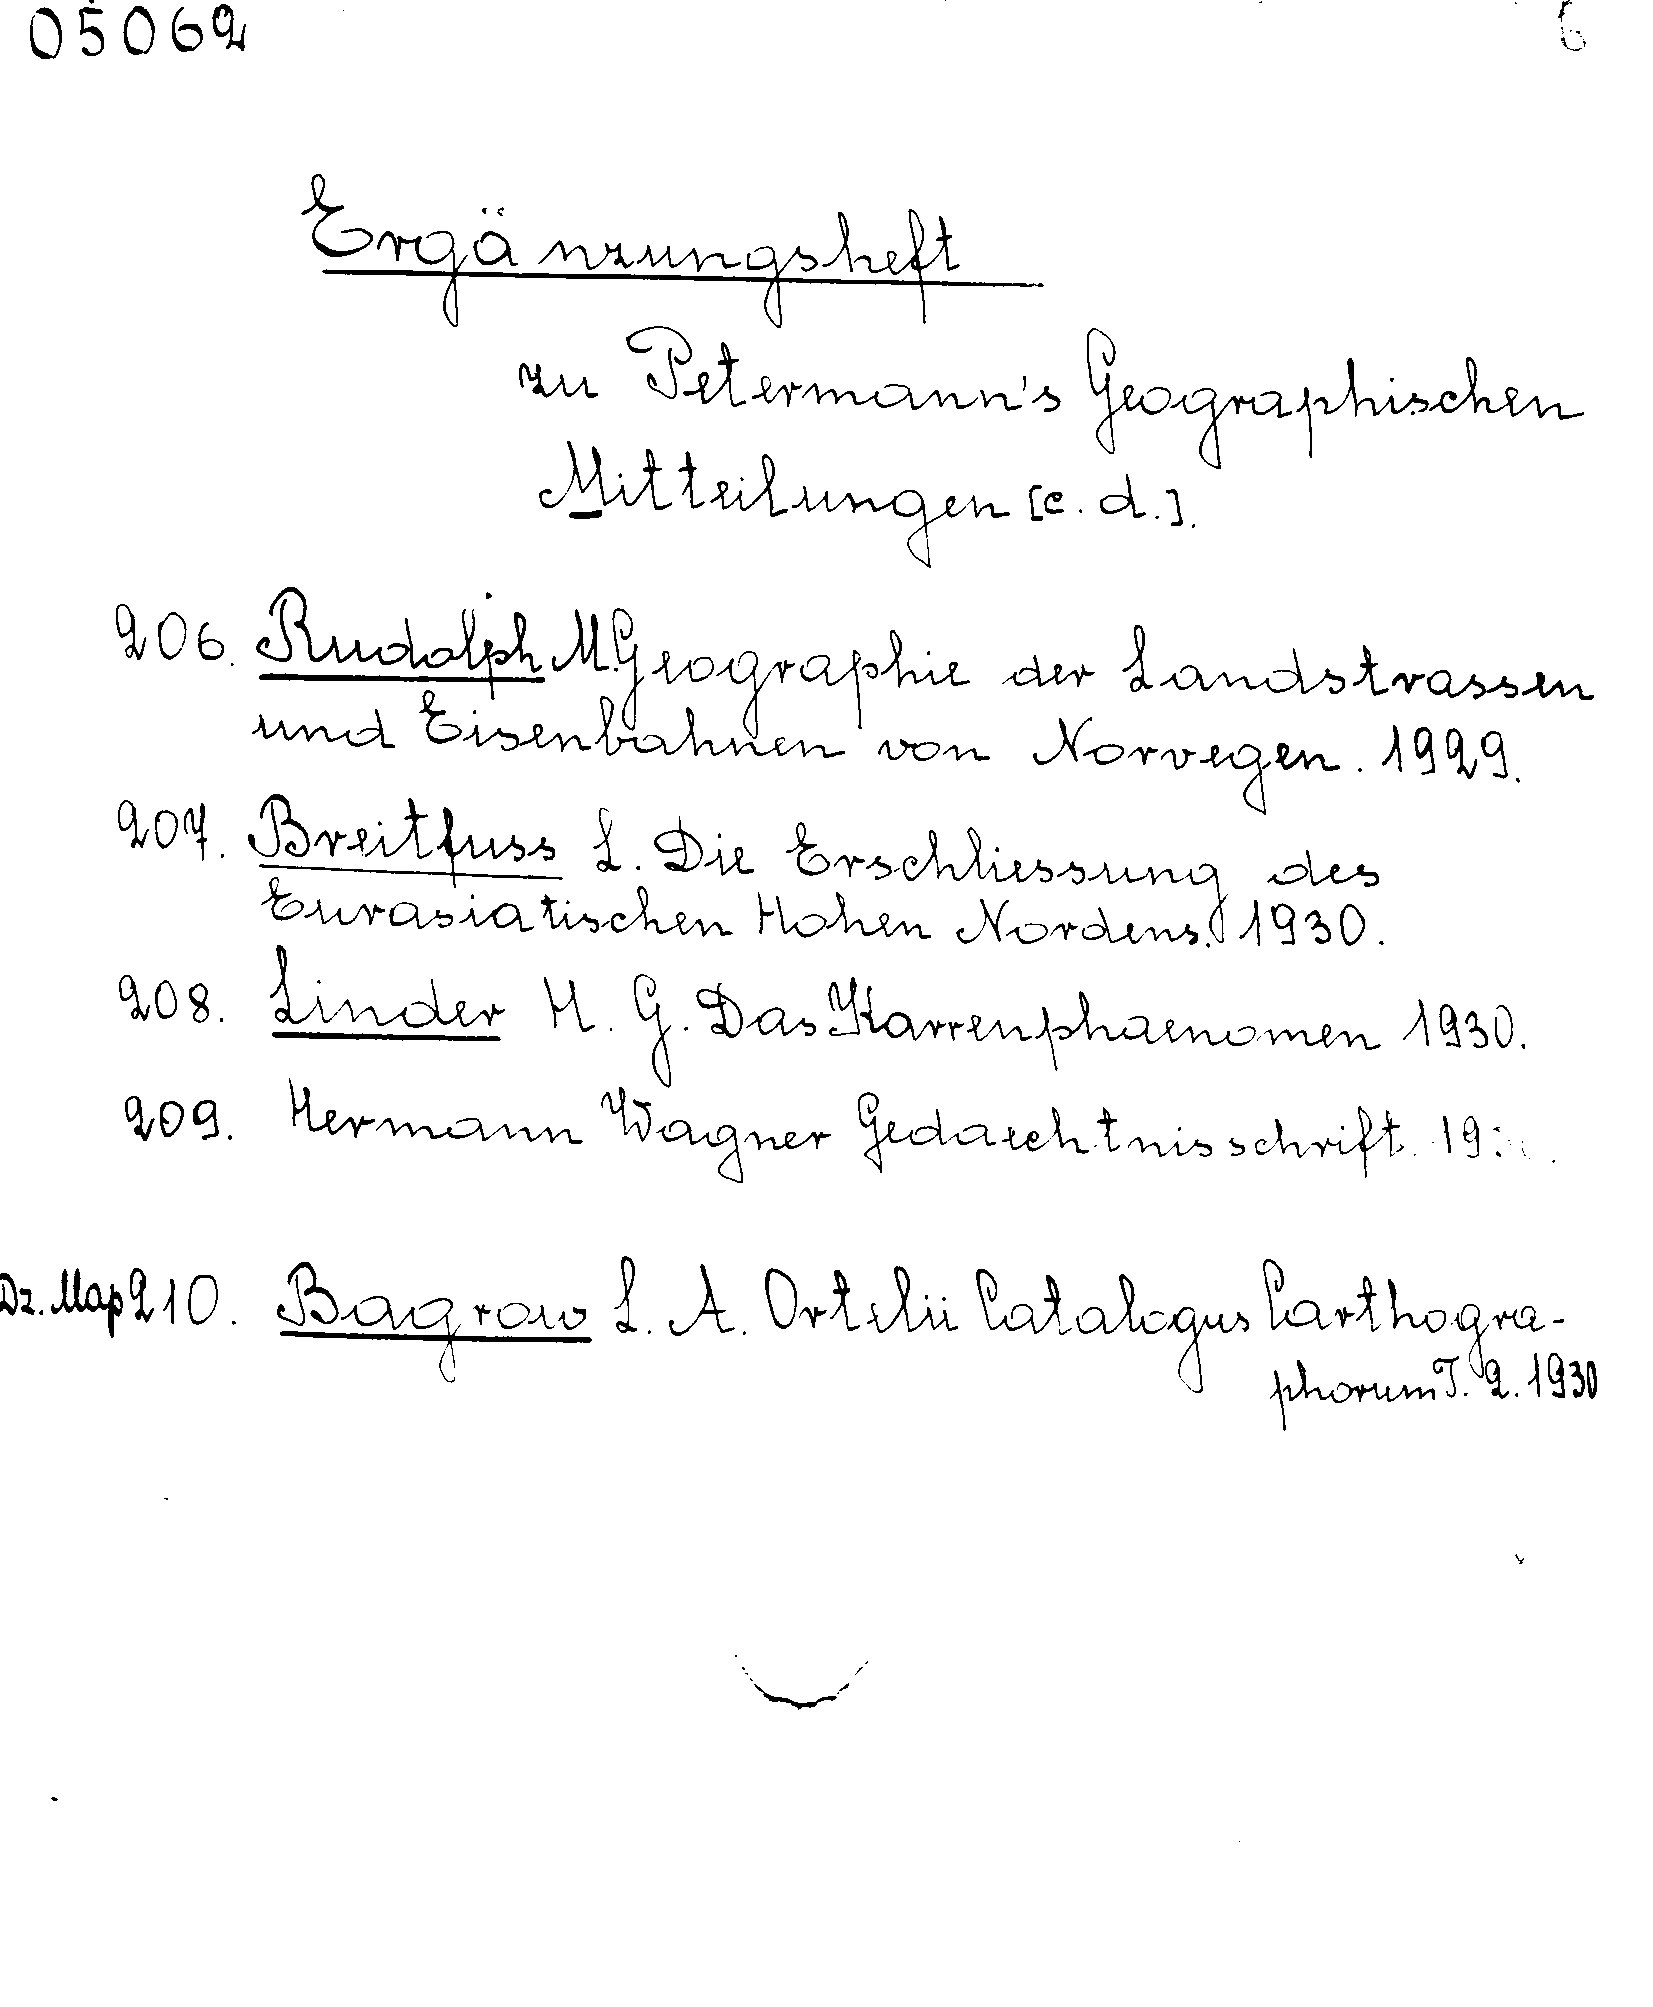 05062 6
Ergänzungsheft
zu Petermann's Geographischen
Mitteilungen [c. d.].
206. Rudolph M. Geographie der Landstrassen
und Eisenbahnen von Norvegen. 1929.
207. Breitfuss L. Die Erschliessung des
Eurasiatischen Hohen Nordens. 1930.
208. Linder H. G. Das Karrenphaenomen 1930.
209. Hermann Wagner Gedaechtnisschrift.
Dz. Map 210. Bagrow L. A. Ortelii Catalogus Carthogra-
phorum T. 2. 1930